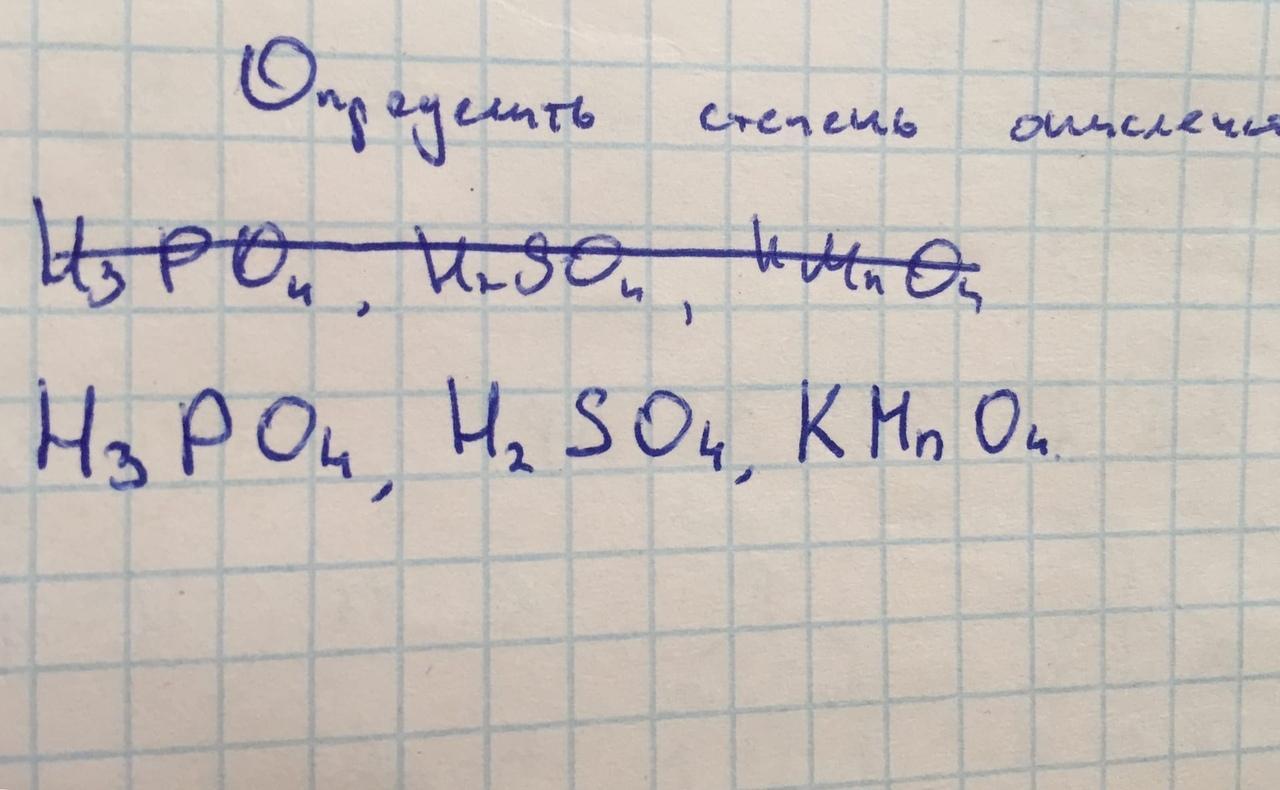 Определить степень окисления
H₃PO₄, H₂SO₄, KMnO₄
H₃PO₄, H₂SO₄, KMnO₄